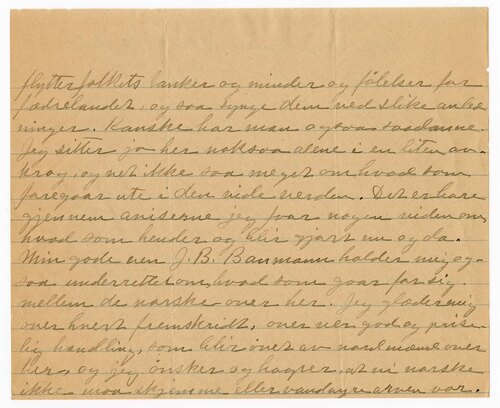 flytterfolkets tanker og minder og følelser for
fædrelandet, og saa synge dem ved slike anled
ninger. Kanske har man ogsaa saadanne.
Jeg sitter jo her noksaa alene i en liten av-
krog, og vet ikke saa meget om hvad som
foregaar ute i den vide verden. Det er bare
gjennem aviserne jeg faar nogen viden om,
hvad som hender og blir gjort nu og da.
Min gode ven J. B. Baumann holder mig og-
saa underrettet om, hvad som gaar for sig
mellem de norske over her. Jeg glæder mig
over hvert fremskridt, over vær god og pris-
lig handling, som blir övet av nordmænd over
her, og jeg ønsker og haaper, at vi norske
ikke maa skjemme eller vandøyre arven vor.